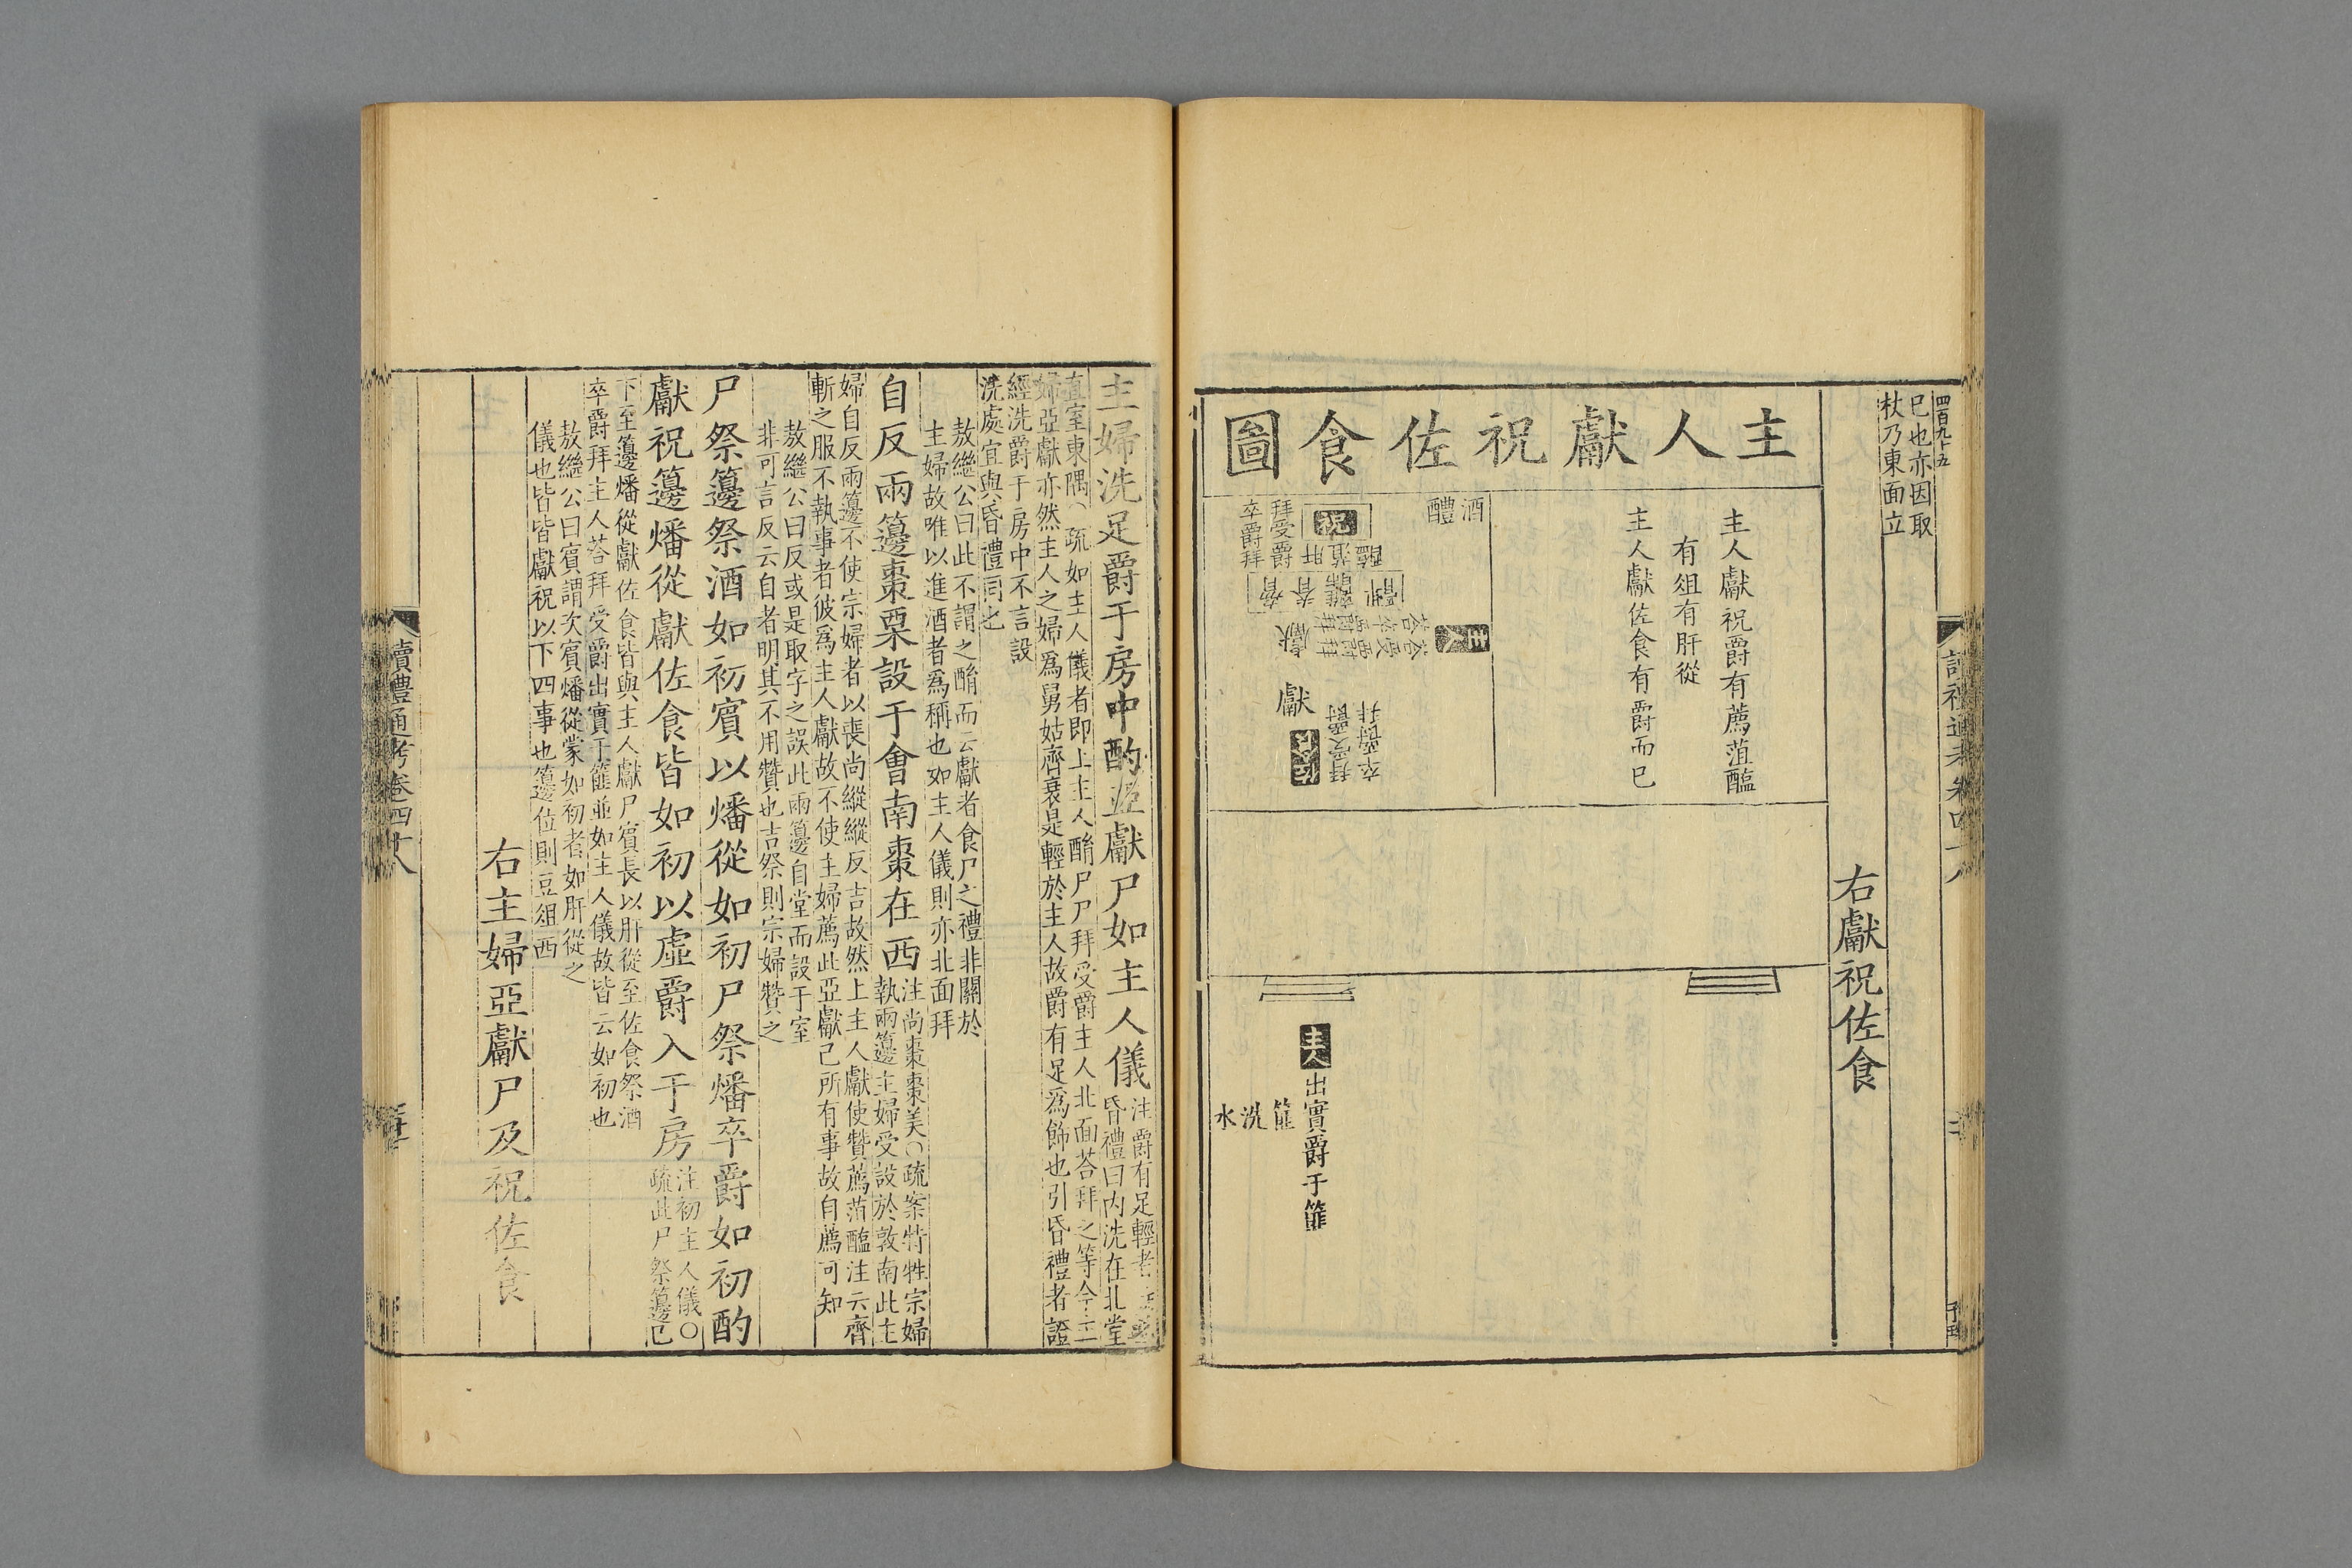 四百九十五
已也亦因取
杖乃東面立
右獻祝佐食
主人獻祝佐食圖
主人獻祝爵有薦菹醢
有俎有肝從
主人獻佐食有爵而已
酒
醴
祝
菹醢
肝
拜受爵
卒爵拜
主人
獻
獻
佐食
拜受爵
卒爵拜
主人出實爵于篚
篚
洗
水
主婦洗足爵于房中酌亞獻尸如主人儀
注爵有足輕者
昏禮曰內洗在北堂
直室東隅〇疏如主人儀者即上主人酳尸尸拜受爵主人北面荅拜之等今主
婦亞獻亦然主人之婦爲舅姑齊衰是輕於主人故爵有足爲飾也引昏禮者證
經洗爵于房中不言設
洗處宜與昏禮同也
敖繼公曰此不謂之酳而云獻者食尸之禮非關於
主婦故唯以進酒者爲稱也如主人儀則亦北面拜
自反兩籩棗栗設于會南棗在西
注尚棗棗美〇疏案特牲宗婦
執兩籩主婦受設於敦南此主
婦自反兩籩不使宗婦者以喪尚縱縱反吉故然上主人獻使贊薦菹醢注云齊
斬之服不執事者彼爲主人獻故不使主婦薦此亞獻己所有事故自薦可知
敖繼公曰反或是取字之誤此兩籩自堂而設于室
非可言反云自者明其不用贊也吉祭則宗婦贊之
尸祭籩祭酒如初賓以燔從如初尸祭燔卒爵如初酌
獻祝籩燔從獻佐食皆如初以虛爵入于房
注初主人儀〇
疏此尸祭籩已
下至籩燔從獻佐食皆與主人獻尸賓長以肝從至佐食祭酒
卒爵拜主人荅拜受爵出實于篚並如主人儀故皆云如初也
敖繼公曰賓謂次賓燔從蒙如初者如肝從之
儀也皆皆獻祝以下四事也籩位則豆俎西
右主婦亞獻尸及祝佐食
讀禮通考卷四十八